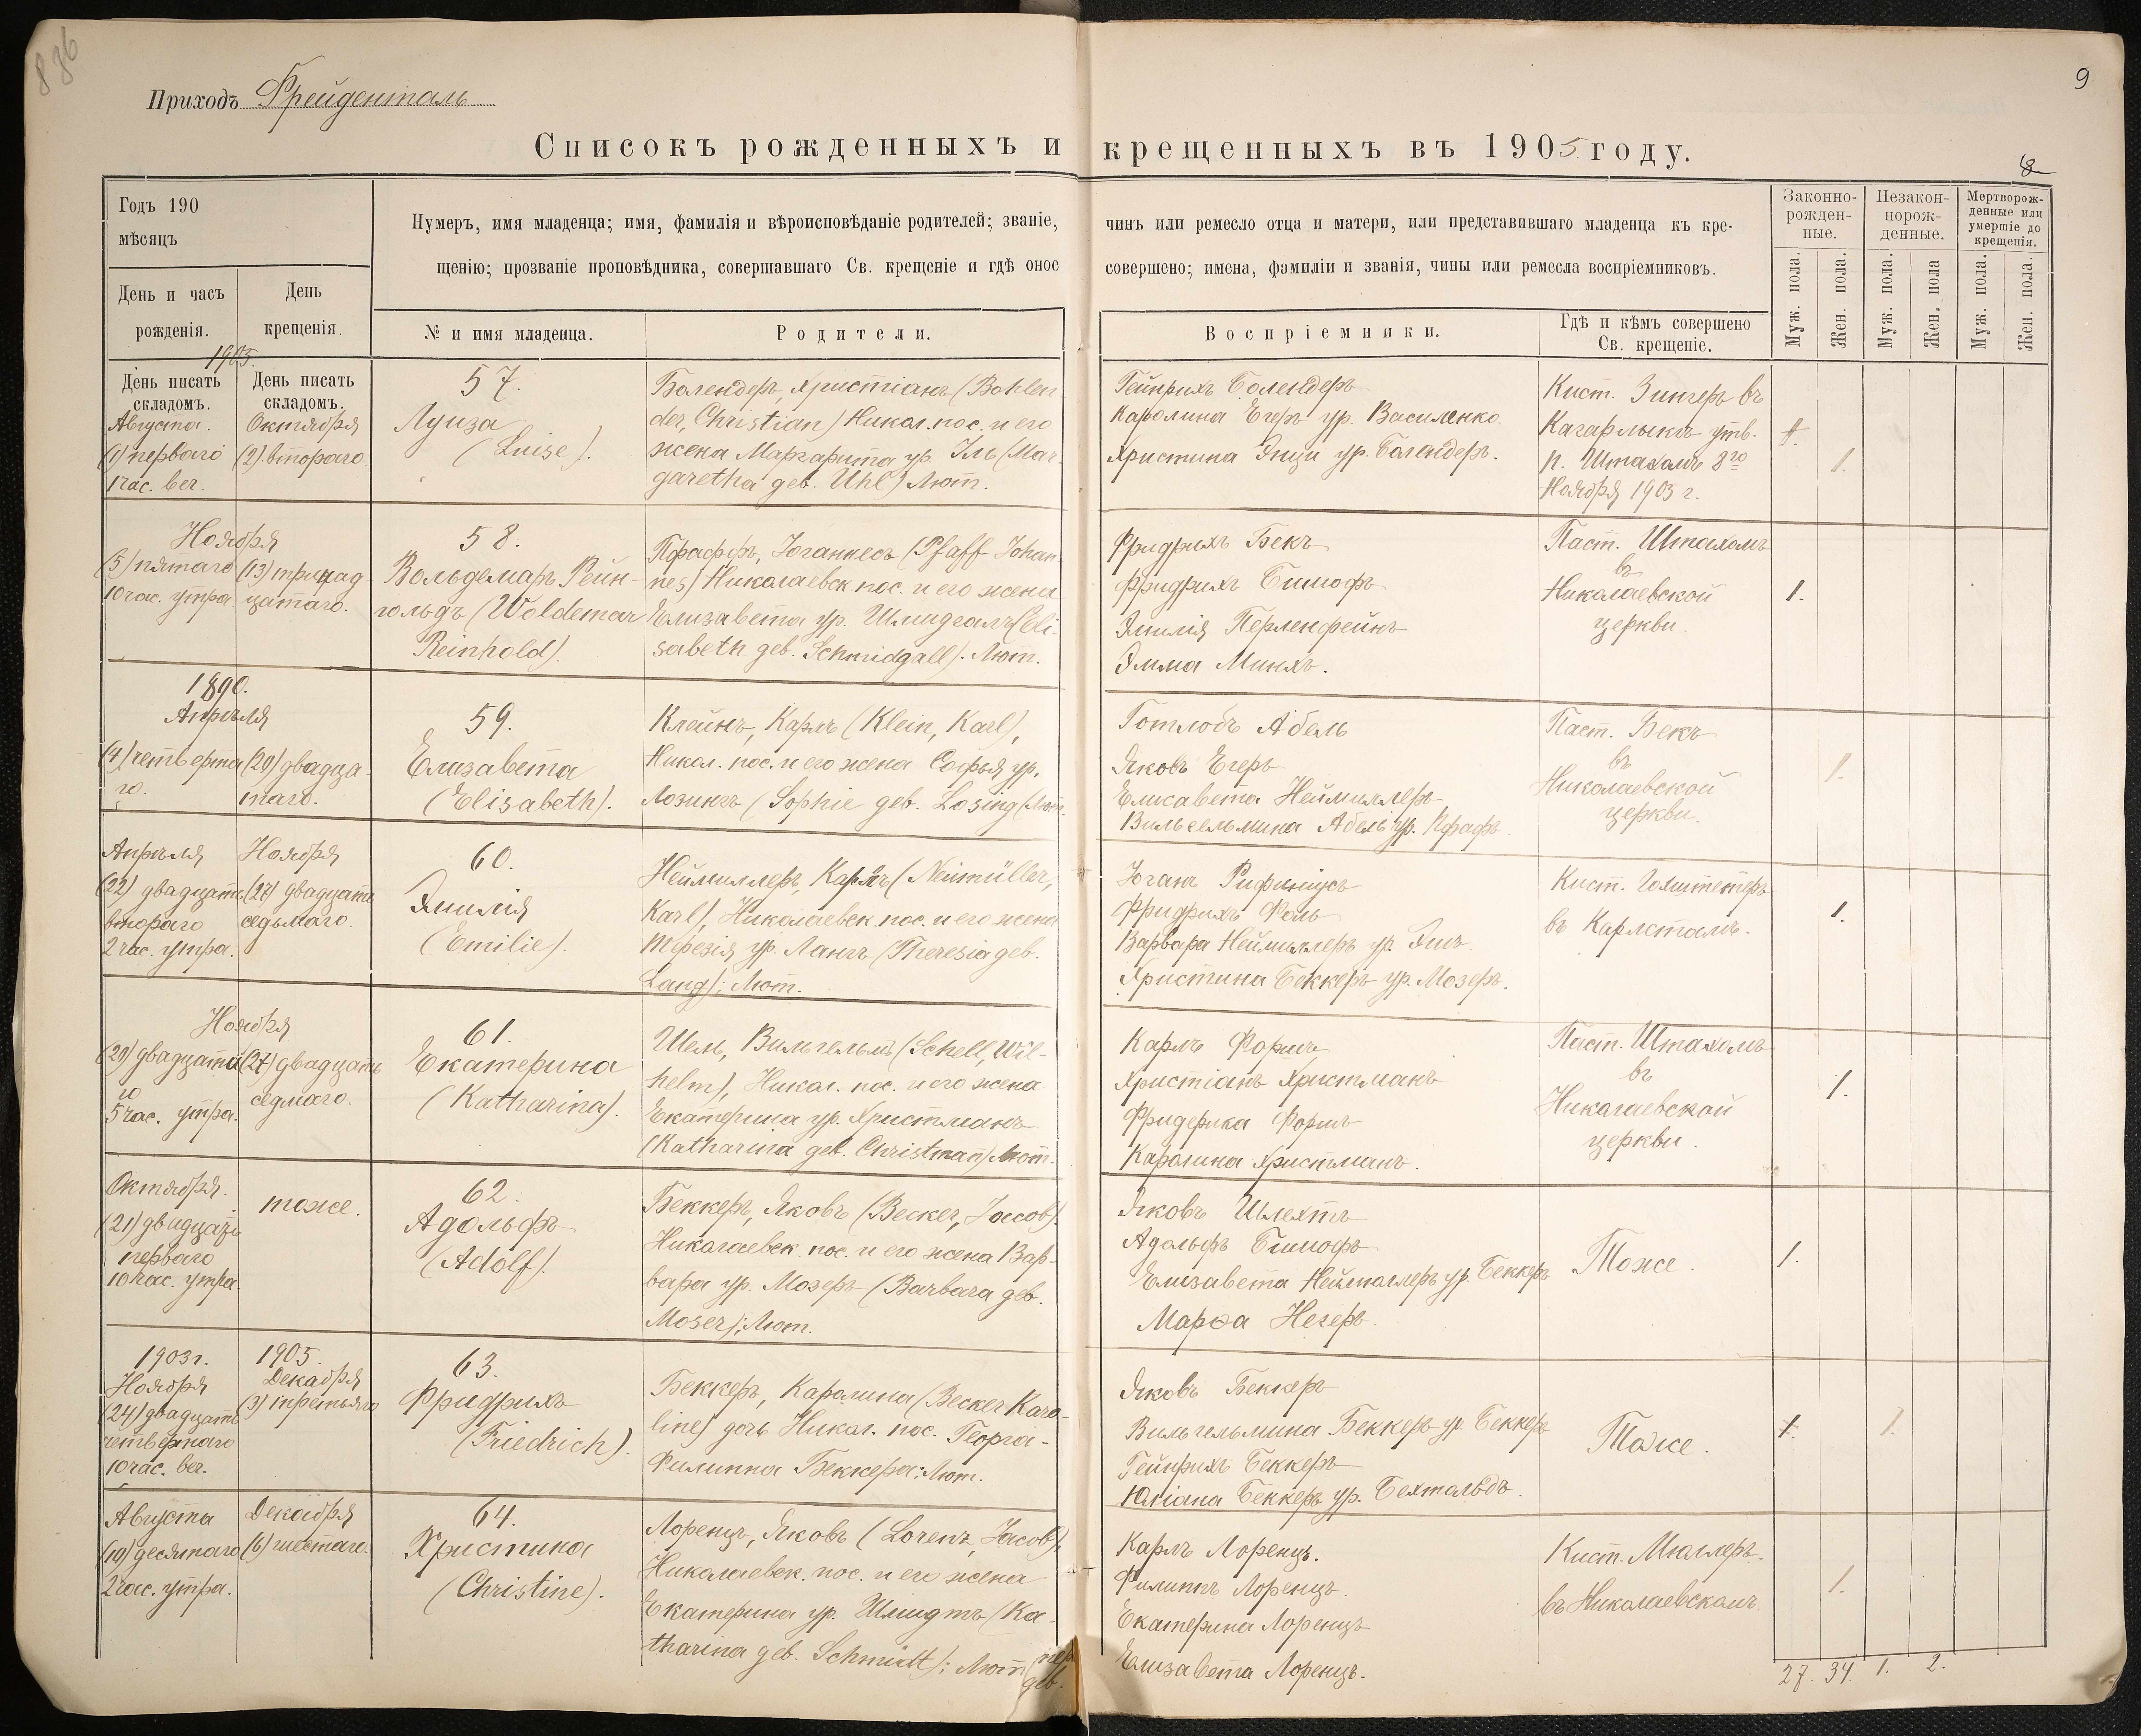 836
9
Приходъ Фрейденталь
Списокъ рожденныхъ и крещенныхъ въ 1905 году.
8
Годъ 190
мѣсяцъ
День и часъ
рожденія.
День
крещенія.
Нумеръ, имя младенца; имя, фамилія и вѣроисповѣданіе родителей; званіе, чинъ или ремесло отца и матери, или представившаго младенца къ кре-
щенію; прозваніе проповѣдника, совершавшаго Св. крещеніе и гдѣ оное совершено; имена, фамиліи и званія, чины или ремесла воспріемниковъ.
№ и имя младенца.
Родители.
Воспріемники.
Гдѣ и кѣмъ совершено
Св. крещеніе.
Законно-
рожден-
ные.
Незакон-
норож-
денные.
Мертворож-
денные или
умершіе до
крещенія.
Муж. пола.
Жен. пола.
Муж. пола.
Жен. пола
Муж. пола.
Жен. пола.
1905.
День писать
складомъ.
Августа.
(1) перваго
1 час. веч.
День писать
складомъ.
Октября
(2) второго.
57.
Луиза
(Luise).
Болендеръ, Христіанъ (Bohlen
der, Christian) Никол. пос. и его
жена Маргарита ур. Іль (Mar-
garetha geb. Uhl) Лют.
Гейнрихъ Болендеръ
Каролина Егеръ ур. Василенко.
Христина Энци ур. Болендеръ.
Кист. Зингеръ въ
Кагарлыкъ утв.
п. Штахомъ 8го
Ноября 1905 г.
1.
1.
Ноября
(5) пятаго
10 час. утра
(13) тринад
цатаго.
58.
Вольдемаръ Рейн-
гольдъ (Woldemar
Reinhold).
Пфаффъ, Іоганнесъ (Pfaff Johan
nes) Николаевск. пос. и его жена
Елизавета ур. Шмидгаль (Eli-
sabeth geb. Schmidgall). Лют.
Фридрихъ Бекъ
Фридрихъ Бишофъ
Эмилія Перленфейнъ
Эмма Минхъ.
Паст. Штахомъ
въ
Николаевской
церкви.
1.
1890.
Апрѣля
(4) четверта
го.
(20) двадца-
таго.
59.
Елизавета
(Elisabeth).
Клейнъ, Карлъ (Klein, Karl),
Никол. пос. и его жена Софья ур.
Лозингъ (Sophie geb. Losing (Лют.
Готлобъ Абель
Яковъ Егеръ
Елисавета Неймиллеръ
Вильгельмина Абель ур. Пфафъ
Паст. Бекъ
въ
Николаевской
церкви.
1.
Апрѣля
(22) двадцать
второго
2 час. утра.
Ноября
(27) двадцать
седьмаго.
60.
Эмилія
(Emilie).
Неймиллеръ, Карлъ (Neimüller,
Karl), Николаевск. пос. и его жена
Терезія ур. Лангъ (Theresia geb.
Lang); Лют.
Іоганъ Рифиніусъ
Фридрихъ Фоль
Варвара Неймиллеръ ур. Эшъ.
Христина Беккеръ ур. Мозеръ.
въ Карлсталѣ.
1.
Ноября
(20) двадцата
го
5 час. утра.
(27) двадцать
седмаго.
61.
Екатерина
(Katharina).
Шель, Вильгельмъ (Schell, Wil-
helm), Никол. пос. и его жена
Екатерина ур. Христманъ
(Katharina geb. Christman) Лют.
Карлъ Форшъ
Христіанъ Христманъ
Фридерика Форшъ
Каролина Христманъ.
Паст. Штахомъ
въ
Николаевской
церкви.
1.
Октября.
(21) двадцать
перваго
10 час. утра.
тоже.
62.
Адольфъ
(Adolf).
Беккеръ, Яковъ (Becker, Jacob).
Николаевск. пос. и его жена Вар-
вара ур. Мозеръ (Barbara geb.
Moser); Лют.
Яковъ Шлехтъ
Адольфъ Бишофъ
Елизавета Неймиллеръ ур. Беккеръ
Марѳа Негеръ.
Тоже.
1.
1903 г.
Ноября
(24) двадцать
четвертаго
10 час. веч.
1905.
Декабря
(3) третьяго
63.
Фридрихъ
(Friedrich).
Беккеръ, Каролина (Becker Karo-
line) дочь Никол. пос. Георга-
Филиппа Беккера; Лют.
Яковъ Беккеръ
Вильгельмина Беккеръ ур. Беккеръ
Гейнрихъ Беккеръ
Юліана Беккеръ ур. Бехтольдъ.
Тоже.
1.
1.
Августа
(10) десятаго
2 час. утра.
Декабря
(6) шестаго.
64.
Христина
(Christine).
Лоренцъ, Яковъ (Lorenz, Jacob),
Николаевск. пос. и его жена
Екатерина ур. Шмидтъ (Ka-
tharina geb. Schmidt); Лют.
Карлъ Лоренцъ.
Филиппъ Лоренцъ.
Екатерина Лоренцъ
Елизавета Лоренцъ.
Кист. Мюллеръ.
въ Николаевскомъ.
1.
27. 34. 1. 2.